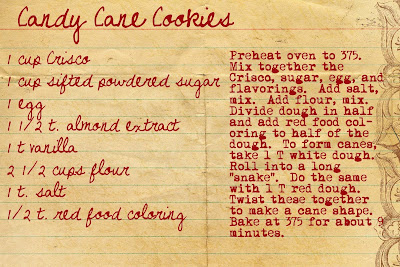 Candy Cane Cookies
1 cup Crisco
1 cup sifted powdered sugar
1 egg
1 1/2 t. almond extract
1 t vanilla
2 1/2 cups flour
1 t. salt
1/2 t. red food coloring
Preheat oven to 375.
Mix together the
Crisco, sugar, egg, and
flavorings. Add salt,
mix. Add flour, mix.
Divide dough in half
and add red food col-
oring to half of the
dough. To form canes,
take 1 T white dough.
Roll into a long
"snake". Do the same
with 1 T red dough.
Twist these together
to make a cane shape.
Bake at 375 for about 9
minutes.